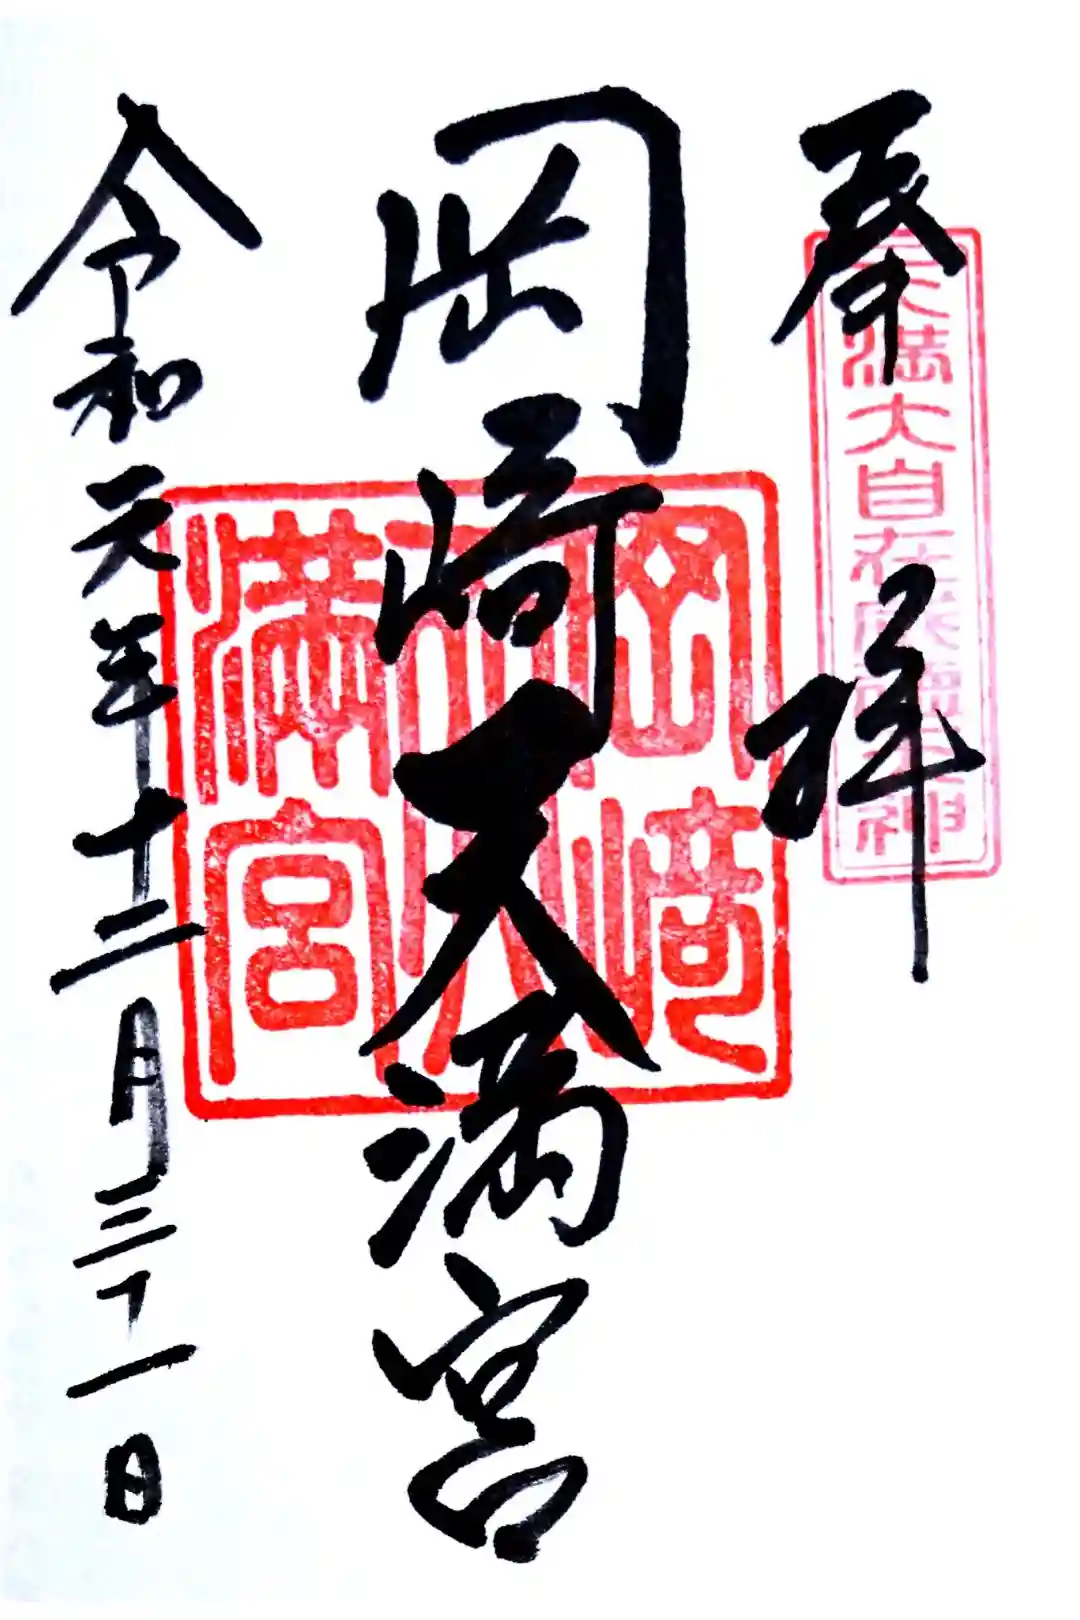 奉拝
天満大自在天神
岡崎天満宮
岡崎天満宮
令和元年十二月三十一日